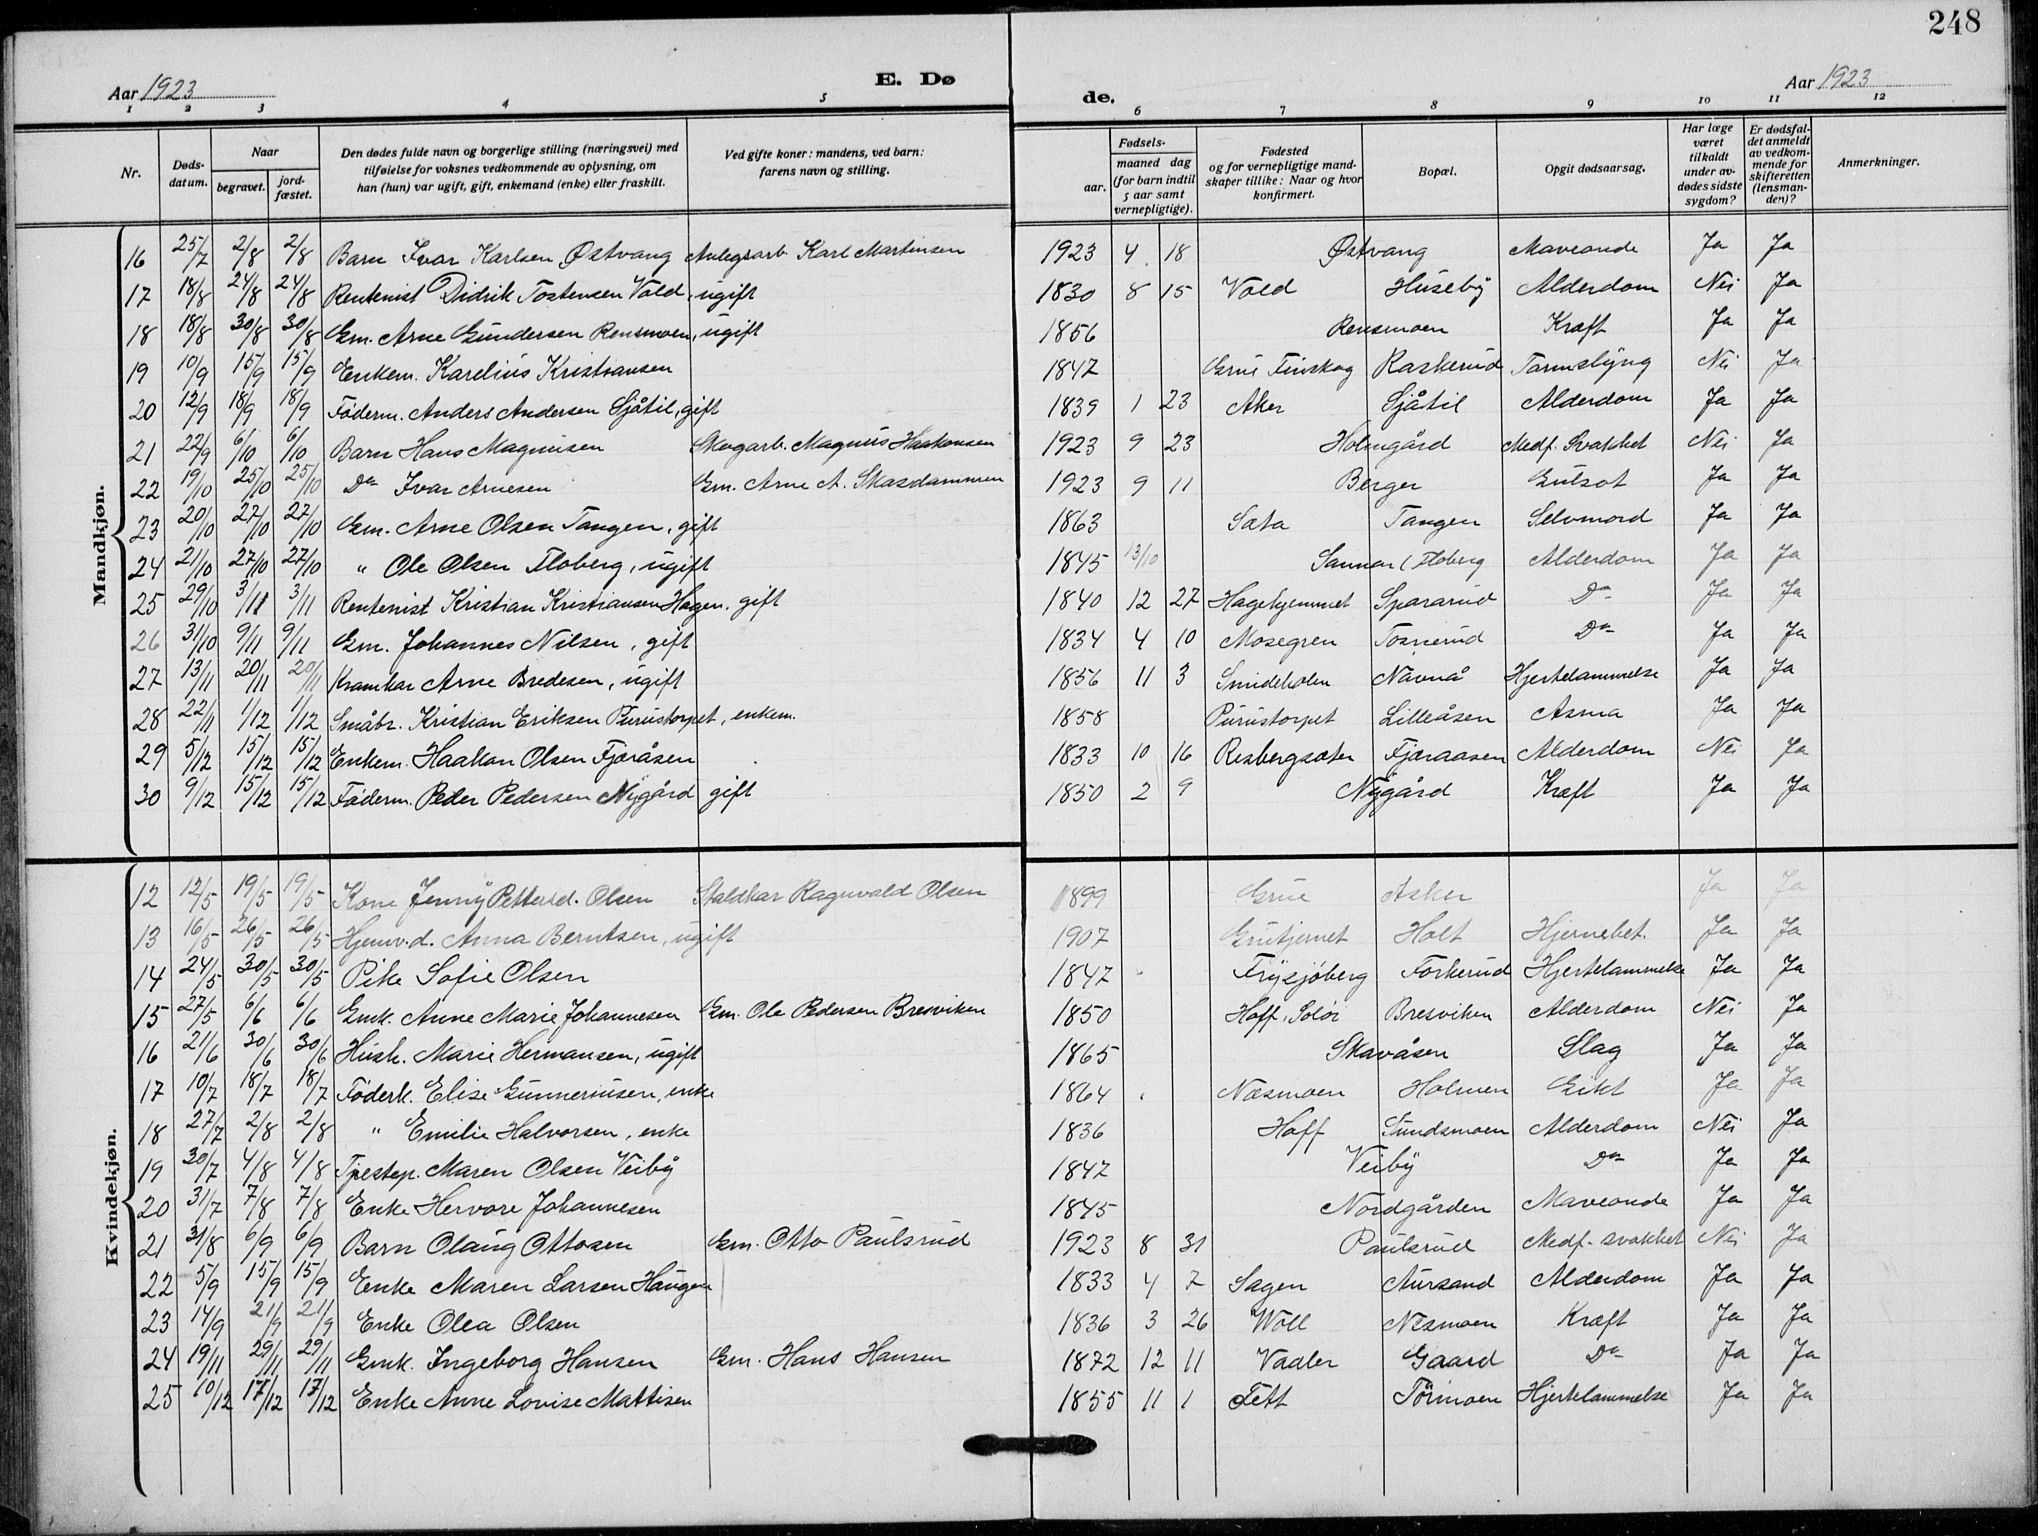 248
Aar 1923 E. Dø de. Aar 1923
1 2 3 4 5 6 7 8 9 10 11 12
Nr. Døds-datum. Naar begravet. jord-fæstet. Den dødes fulde navn og borgerlige stilling (næringsvei) med tilføielse for voksnes vedkommende av oplysning, om han (hun) var ugift, gift, enkemand (enke) eller fraskilt. Ved gifte koner: mandens, ved barn: farens navn og stilling. Fødsels- aar. maaned dag (for barn indtil 5 aar samt vernepligtige). Fødested og for vernepligtige mand-skaper tillike: Naar og hvor konfirmert. Bopæl. Opgit dødsaarsag. Har læge været tilkaldt under av-dødes sidste sygdom? Er dødsfal-det anmeldt av vedkom-mende for skifteretten (lensman-den)? Anmerkninger.
Mandkjøn.
16 25/7 2/8 2/8 Barn Ivar Karlsen Østvang Anlegsarb. Karl Martinsen 1923 4 18 Østvang Maveonde Ja Ja
17 18/8 24/8 24/8 Rentenist Didrik Tostensen Vold, ugift 1830 8 15 Vold Huseby Alderdom Nei Ja
18 18/8 30/8 30/8 Gm. Arne Gundersen Rensmoen, ugift 1856 Rensmoen Kræft Ja Ja
19 10/9 15/9 15/9 Enkem. Karelius Kristiansen 1847 Grue Finskog Raskerud Tarmslyng Nei Ja
20 12/9 18/9 18/9 Føderm. Anders Andersen Sjåtil, gift 1839 1 23 Aker Sjåtil Alderdom Ja Ja
21 22/9 6/10 6/10 Barn Hans Magnusen Skogarb. Magnus Haakonsen 1923 9 23 Holmgård Medf. Svakhet Nei Ja
22 19/10 25/10 25/10 Do Ivar Arnesen Gm. Arne A. Skasdammen 1923 9 11 Berger Gulsot Ja Ja
23 20/10 27/10 27/10 Gm. Arne Olsen Tangen, gift 1863 Sata Tangen Selvmord Ja Ja
24 21/10 27/10 27/10 " Ole Olsen Floberg, ugift 1845 13/10 Sannar / Floberg Alderdom Ja Ja
25 29/10 3/11 3/11 Rentenist Kristian Kristiansen Hagen, gift 1840 12 27 Hagehjemmet Spararud Do Ja Ja
26 31/10 9/11 9/11 Gm. Johannes Nilsen, gift 1834 4 10 Mosegren Tosnerud Do Ja Ja
27 13/11 20/11 20/11 Kramkar Arne Bredesen, ugift 1856 11 3 Smideholen Navnå Hjertelammelse Ja Ja
28 22/11 1/12 1/12 Småbr. Kristian Eriksen Purustorpet, enkem. 1858 Purustorpet Lilleåsen Asma Ja Ja
29 5/12 15/12 15/12 Enkem. Haakon Olsen Fjæråsen 1833 10 16 Risbergsæter Fjæraasen Alderdom Nei Ja
30 9/12 15/12 15/12 Føderm. Peder Pedersen Nygård gift 1850 2 9 Nygård Kræft Ja Ja
Kvindekjøn.
12 12/5 19/5 19/5 Kone Jenny Pettersd. Olsen Staldkar Ragnvald Olsen 1899 Grue Asker Ja Ja
13 16/5 26/5 26/5 Hjemv.d. Anna Berntsen, ugift 1907 Gruetjernet Holt Hjernebet. Ja Ja
14 24/5 30/5 30/5 Pike Sofie Olsen 1847 Frysjöberg Forkerud Hjertelammelse Ja Ja
15 27/5 6/6 6/6 Gmk. Anne Marie Johannesen Gm. Ole Pedersen Bresviken 1850 Hoff, Solör Bresviken Alderdom Nei Ja
16 21/6 30/6 30/6 Hush. Marie Hermansen, ugift 1865 Skavåsen Slag Ja Ja
17 10/7 18/7 18/7 Føderk. Elise Gunneriusen, enke 1864 Næsmoen Holmen Gikt Ja Ja
18 27/7 2/8 2/8 " Emilie Halvorsen, enke 1836 Hoff Sundsmoen Alderdom Nei Ja
19 30/7 4/8 4/8 Tjestep. Maren Olsen Veiby 1847 Veiby Do Ja Ja
20 31/7 7/8 7/8 Enke Hervore Johannesen 1845 Nordgården Maveonde Ja Ja
21 31/8 6/9 6/9 Barn Olaug Ottosen Gm. Otto Paulsrud 1923 8 31 Paulsrud Medf. svakhet Nei Ja
22 5/9 15/9 15/9 Enke Maren Larsen Haugen 1833 4 7 Sagen Aursand Alderdom Ja Ja
23 14/9 21/9 21/9 Enke Olea Olsen 1836 3 26 Woll Nesmoen Kræft Ja Ja
24 19/11 29/11 29/11 Gmk. Ingeborg Hansen Gm. Hans Hansen 1872 12 11 Vaaler Gaard Do Ja Ja
25 10/12 17/12 17/12 Enke Anne Lovise Mattisen 1855 11 1 Fett Törmoen Hjertelammelse Ja Ja